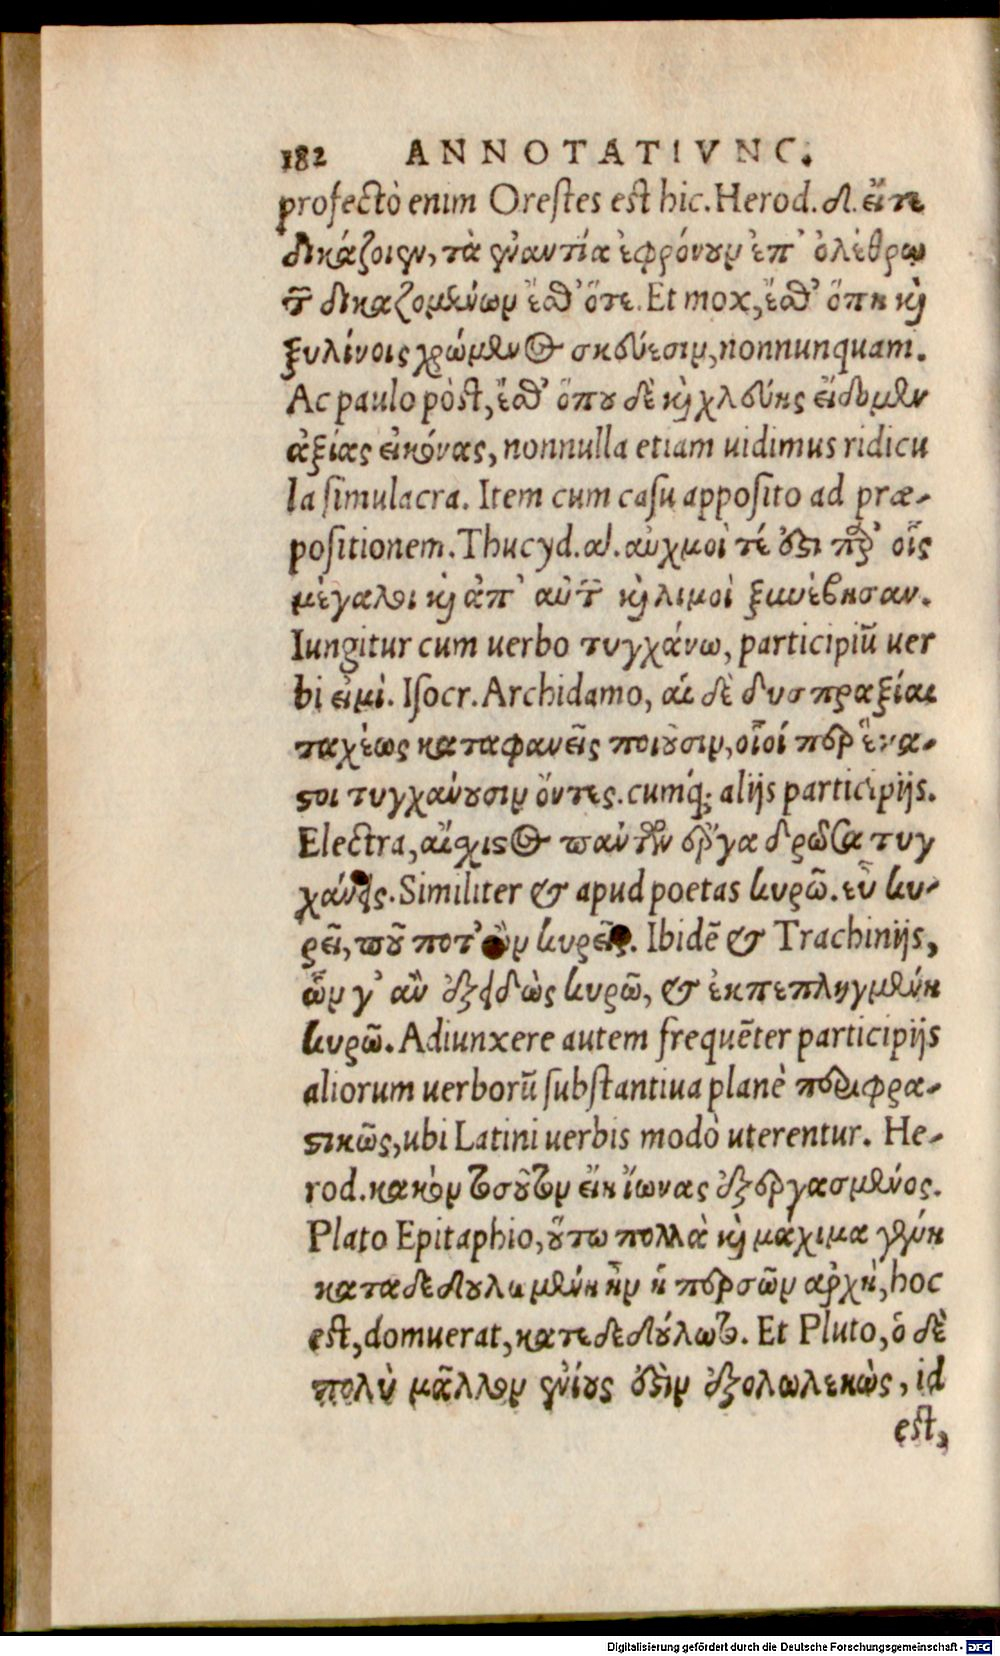 182 ANNOTATIVNC.
profectò enim Orestes est hic. Herod. δ. εἴτε
δικάζοιεν, τὰ ἐναντία ἐφρόνουν ἐπ' ὀλέθρω
τῶν δικαζομένων ἔσθ' ὅτε. Et mox, ἔσθ' ὅπη καὶ
ξυλίνοις χρώμενος σκεύεσιν, nonnunquam.
Ac paulo pòst, ἔσθ' ὅπου δὲ καὶ χλεύης εἴδομεν
ἀξίας εἰκόνας, nonnulla etiam uidimus ridicu
la simulacra. Item cum casu apposito ad præ-
positionem. Thucyd. α. αὐχμοὶ τέ ἔστι παρ' οἷς
μέγαλοι καὶ ἀπ' αὐτῶν καὶ λιμοὶ ξυνέβησαν.
Iungitur cum uerbo τυγχάνω, participiũ uer
bi εἰμὶ. Isocr. Archidamo, αἱ δὲ δυσπραξίαι
ταχέως καταφανεῖς ποιοῦσιν, οἷοί περ ἕνα-
στοι τυγχάνουσιν ὄντες. cumq́; alijs participijs.
Electra, αἴσχιστος πάντων ἔργα δρῶσα τυγ
χάνεις. Similiter & apud poetas κυρῶ. εὖ κυ-
ρεῖ, ποῦ ποτ' ὢν κυρεῖς. Ibidẽ & Trachinijs,
ὧν γ' ἂν ἐξειδὼς κυρῶ, & ἐκπεπληγμένη
κυρῶ. Adiunxere autem frequẽter participijs
aliorum uerborũ substantiua planè περιφρα-
στικῶς, ubi Latini uerbis modò uterentur. He-
rod. κακὸν τοσοῦτον εἴη ἴωνας ἐξεργασμένος.
Plato Epitaphio, οὕτω πολλὰ καὶ μάχιμα γένη
καταδεδουλωμένη ἦν ἡ περσῶν αρχὴ, hoc
est, domuerat, κατεδεδούλωτο. Et Pluto, ὁ δὲ
πολὺ μᾶλλον ἐνίους ἐστὶν ἐξολωλεκὼς, id
est,
Digitalisierung gefördert durch die Deutsche Forschungsgemeinschaft - DFG